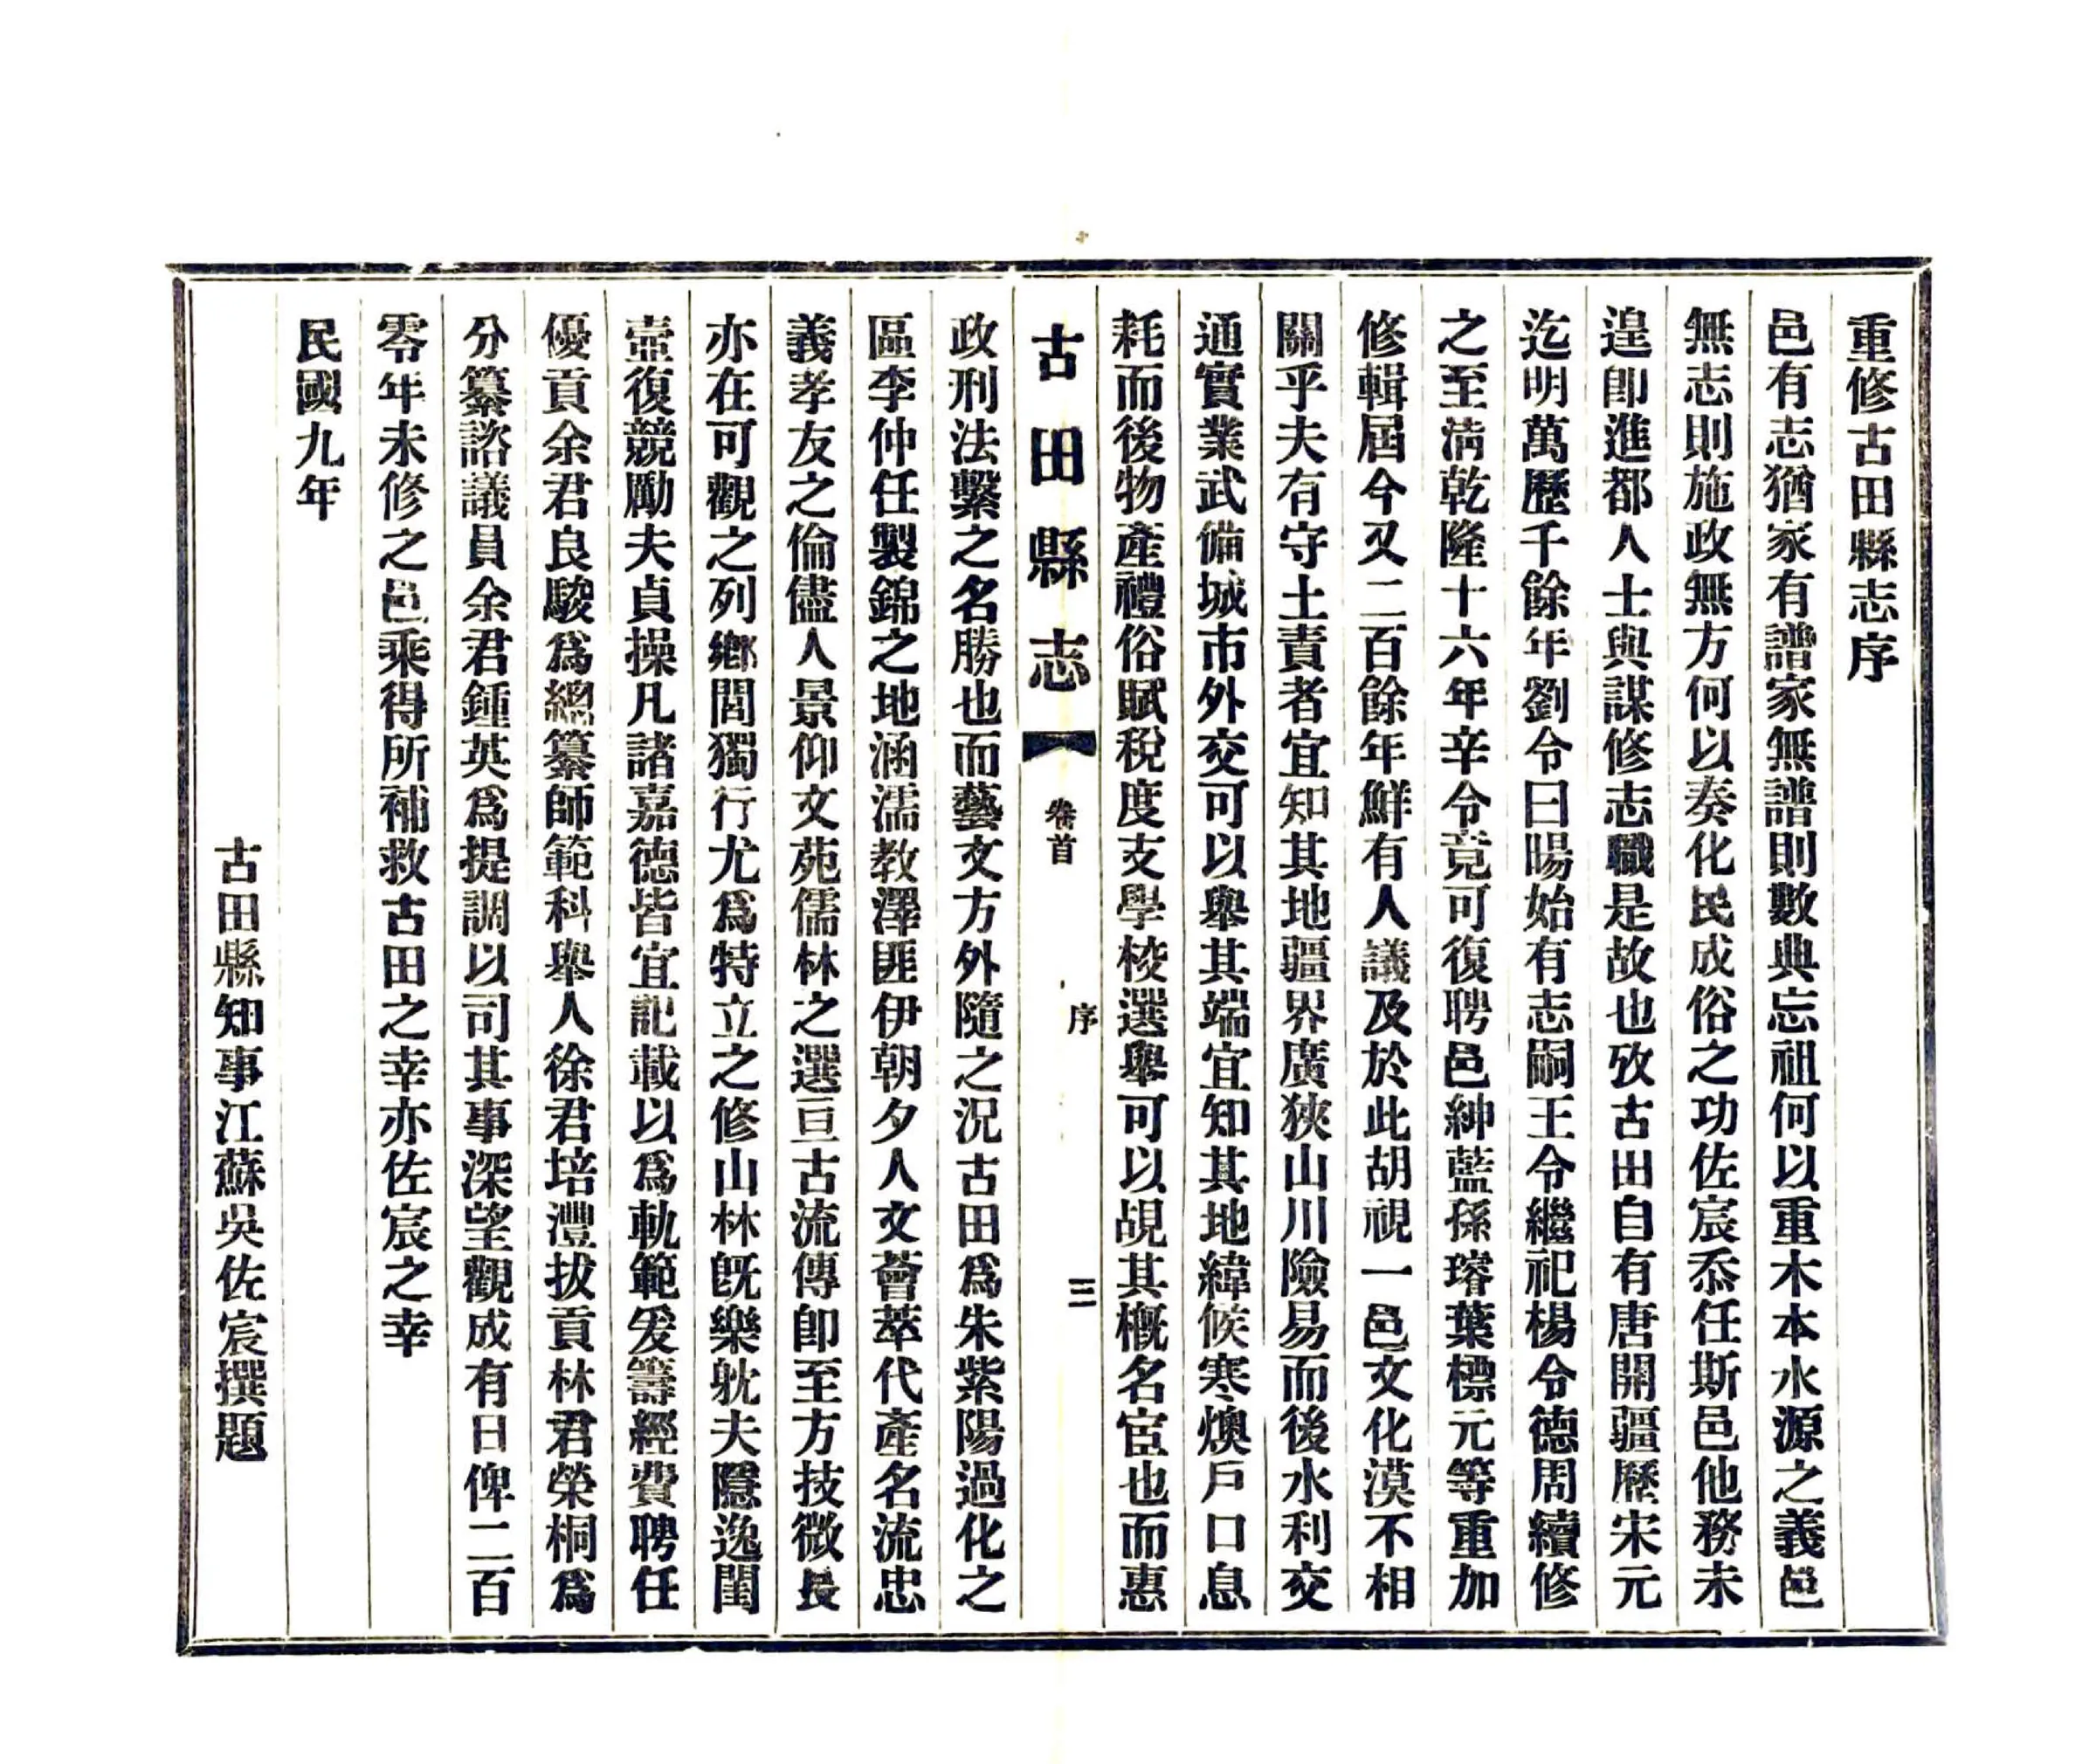 重修古田縣志序
邑有志猶家有譜家無譜則數典忘祖何以重木本水源之義邑
無志則施政無方何以奏化民成俗之功佐宸忝任斯邑他務未
遑卽進都人士與謀修志職是故也攷古田自有唐開疆歷宋元
迄明萬歷千餘年劉令曰暘始有志嗣王令繼祀楊令德周續修
之至淸乾隆十六年辛令竟可復聘邑紳藍孫璿葉標元等重加
修輯屆今又二百餘年鮮有人議及於此胡視一邑文化漠不相
關乎夫有守土責者宜知其地疆界廣狹山川險易而後水利交
通實業武備城市外交可以舉其端宜知其地緯候寒燠戶口息
耗而後物產禮俗賦稅度支學校選舉可以覘其槪名宦也而惠
古田縣志 卷首 序 三
政刑法繫之名勝也而藝文方外隨之況古田爲朱紫陽過化之
區李仲任製錦之地涵濡教澤匪伊朝夕人文薈萃代產名流忠
義孝友之倫儘人景仰文苑儒林之選亘古流傳卽至方技微長
亦在可觀之列鄉閭獨行尤爲特立之修山林旣樂躭夫隱逸閨
壼復競勵夫貞操凡諸嘉德皆宜記載以爲軌範爰籌經費聘任
優貢余君良駿爲總纂師範科舉人徐君培灃拔貢林君榮桐爲
分纂諮議員余君鍾英爲提調以司其事深望觀成有日俾二百
零年未修之邑乘得所補救古田之幸亦佐宸之幸
民國九年
古田縣知事江蘇吳佐宸撰題